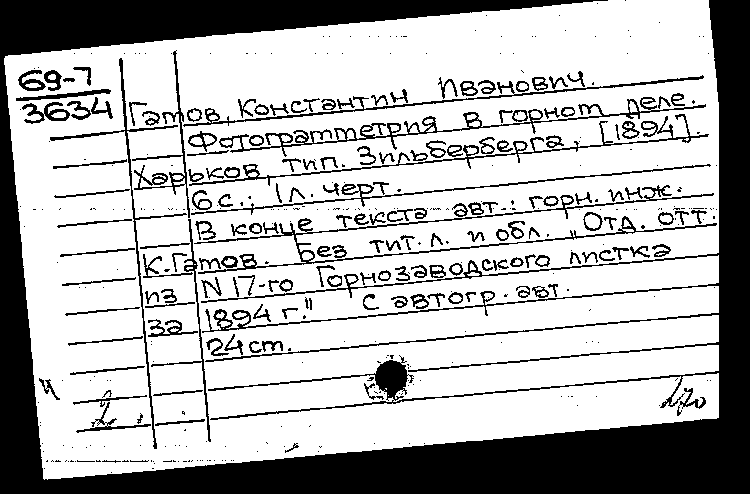 69-7
3634
Гатов, Константин Иванович.
Фотограмметрия в горном деле.
Харьков, тип. Зильберберга, [1894].
6 с.; 1 л. черт.
В конце текста авт.: горн. инж.
К. Гатов. Без тит. л. и обл. „Отд. отт.
из N 17-го Горнозаводского листка
за 1894 г." С автогр. авт.
24 ст.
2
270